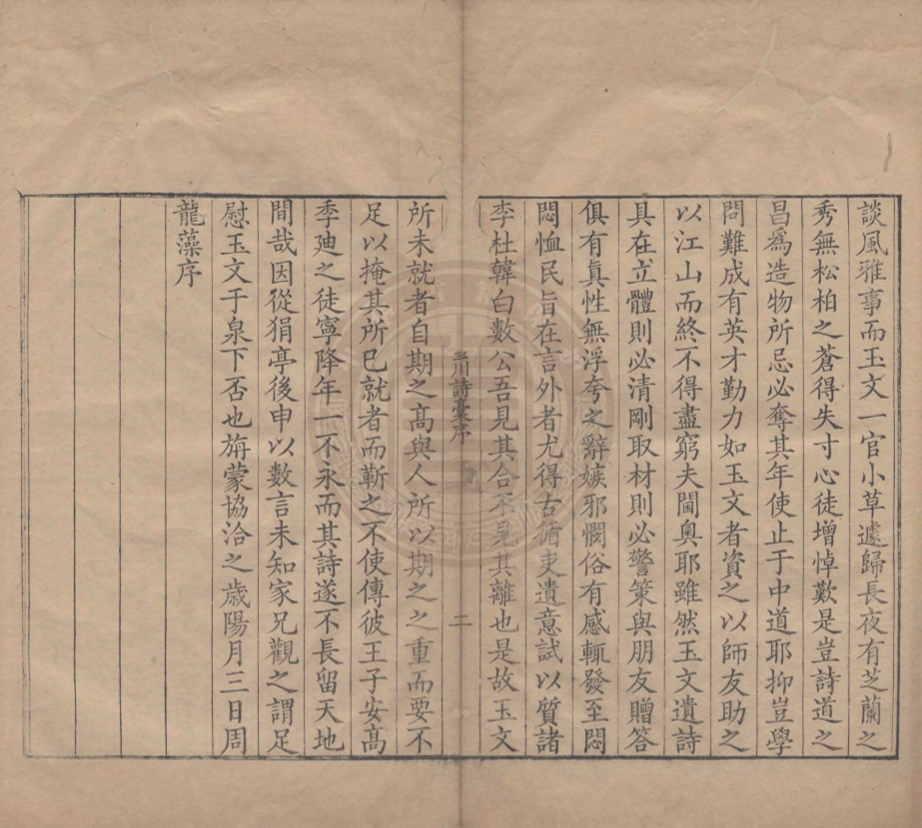 談風雅事而玉文一官小草遽歸長夜有芝蘭之
秀無松柏之蒼得失寸心徒增悼歎是豈詩道之
昌爲造物所忌必奪其年使止于中道耶抑豈學
問難成有英才勤力如玉文者資之以師友助之
以江山而終不得盡窮夫閫奧耶雖然玉文遺詩
具在立體則必清剛取材則必警策與朋友贈答
俱有眞性無浮夸之辭嫉邪憫俗有感輒發至悶
悶恤民旨在言外者尤得古循吏遺意試以質諸
李杜韓白數公吾見其合不見其離也是故玉文
川詩稾序
二
所未就者自期之高與人所以期之之重而要不
足以掩其所巳就者而靳之不使傳彼王子安高
季廸之徒寧降年一不永而其詩遂不長留天地
間哉因從狷亭後申以數言未知家兄觀之謂足
慰玉文于泉下否也旃蒙協洽之歲陽月三日周
龍藻序